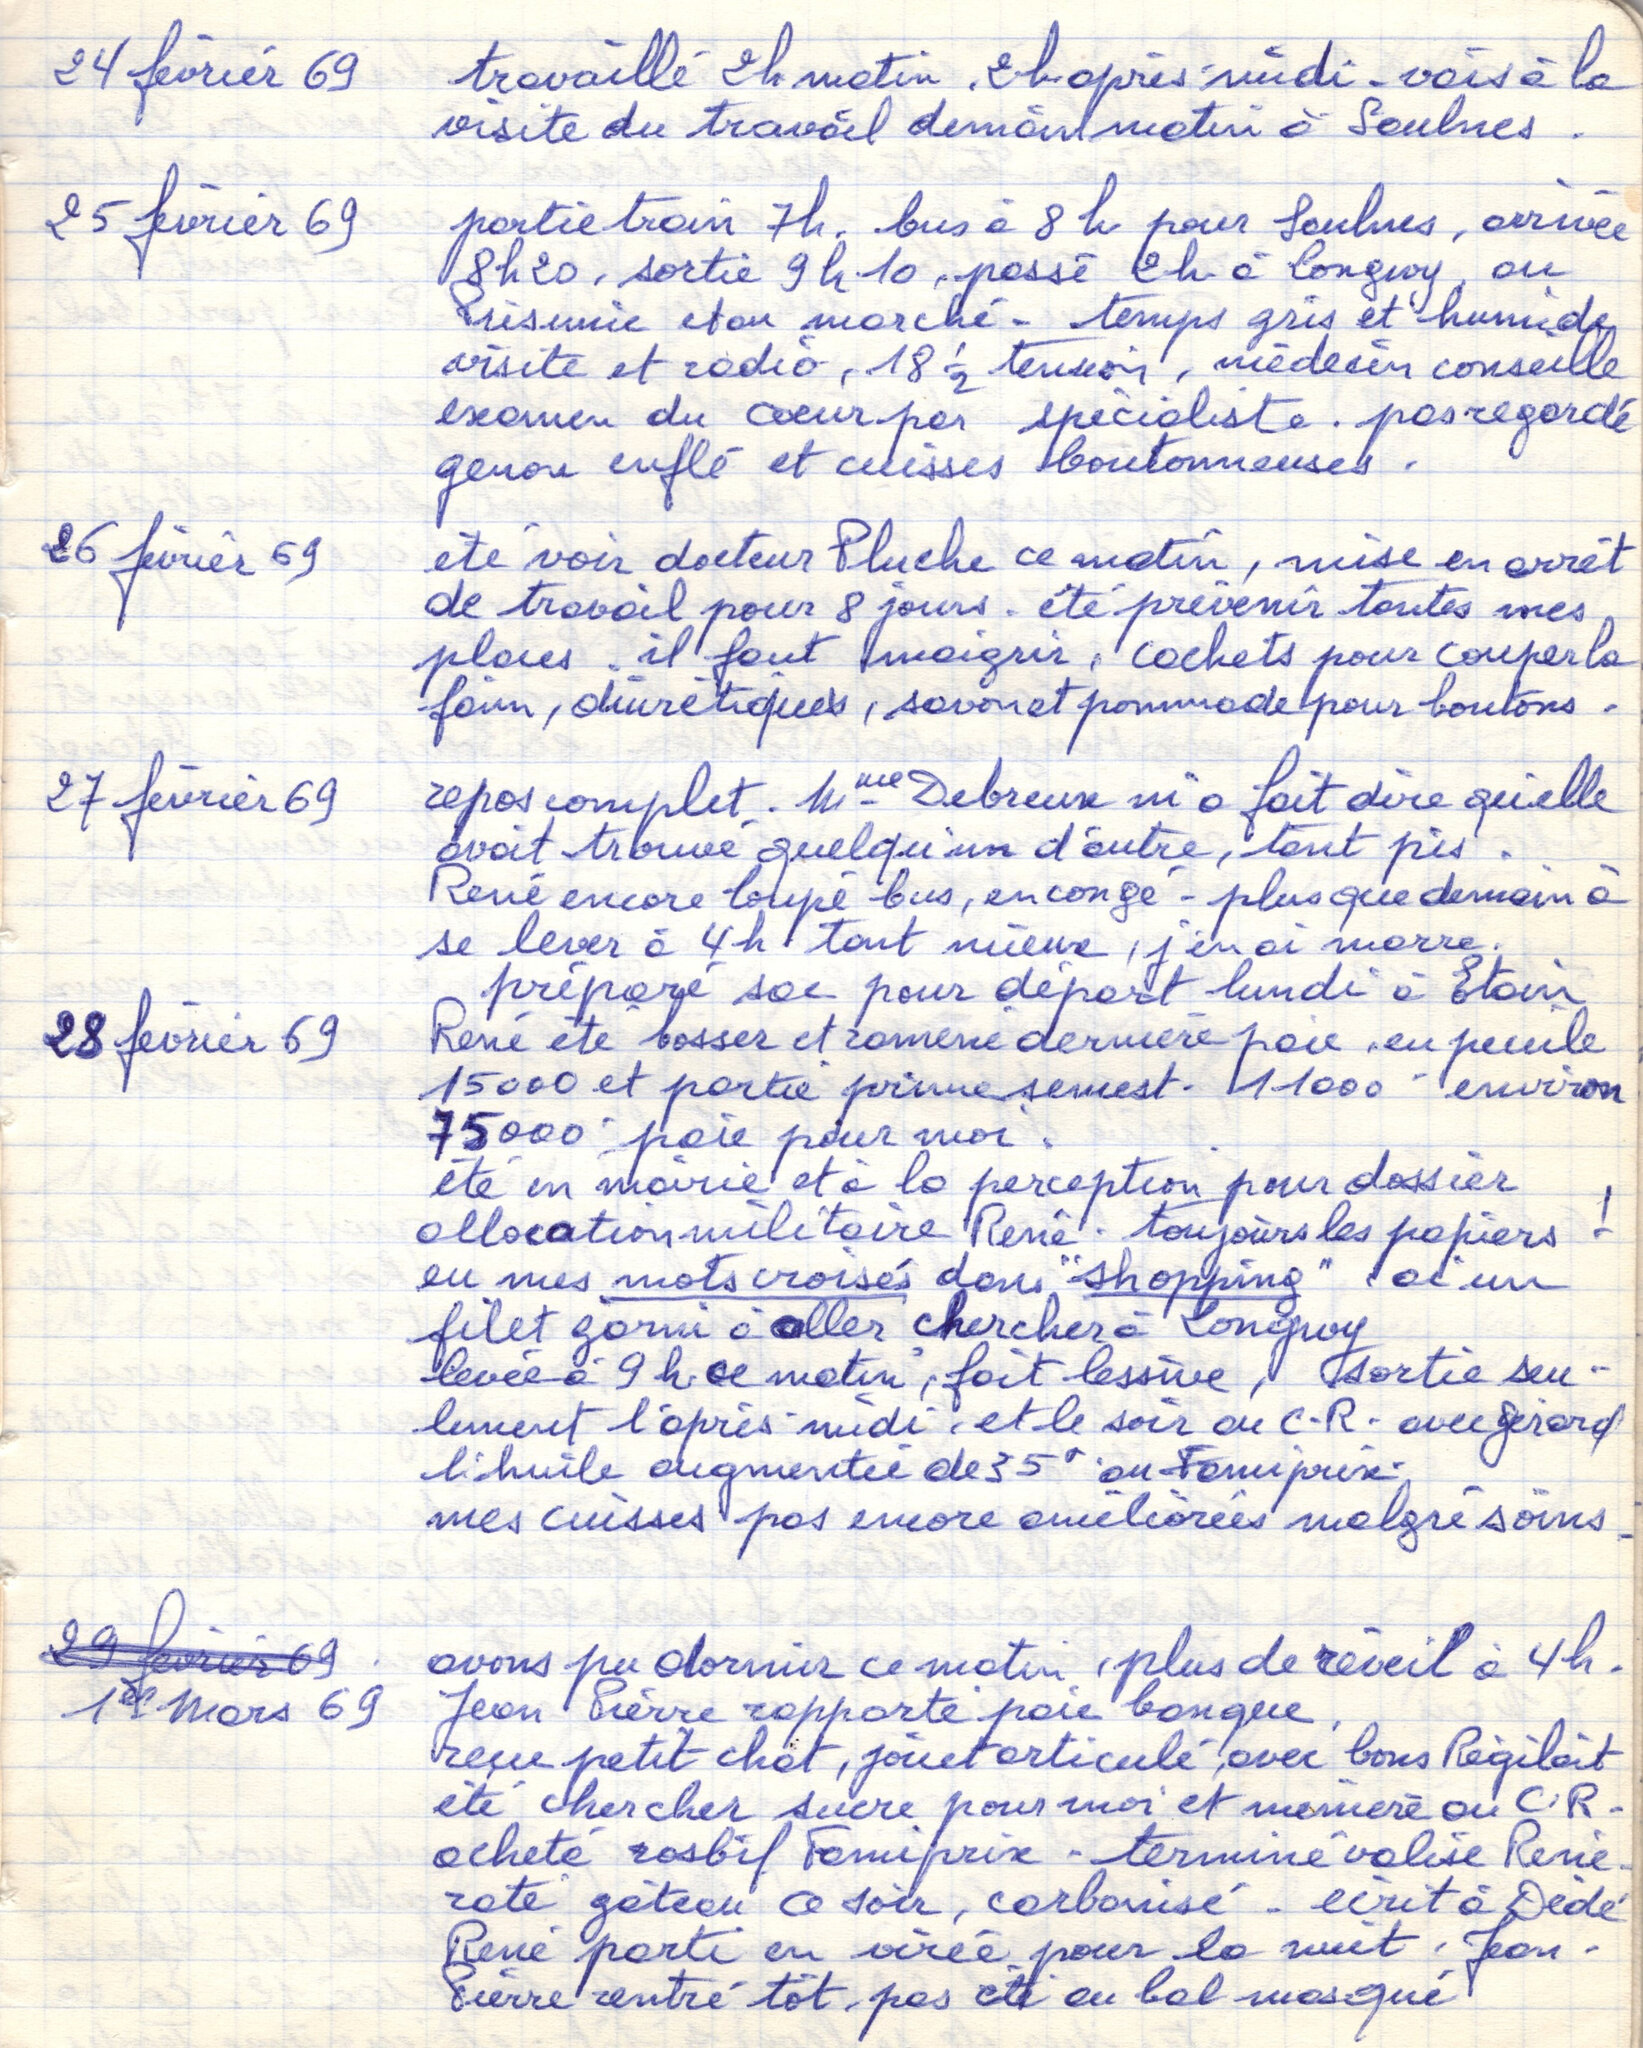 24 février 69 travaillé 2h matin. 2h après-midi - vais à la
visite du travail demain matin à Saulnes.
25 février 69 partie train 7h. bus à 8h pour Saulnes, arrivée
8h20. sortie 9h10. passé 2h à Longwy, au
Prisunic et au marché - temps gris et humide
visite et radio, 18 ½ tension, médecin conseille
examen du coeur par spécialiste. pas regardé
genou enflé et cuisses boutonneuses.
26 février 69 été voir docteur Pluche ce matin, mise en arrêt
de travail pour 8 jours. été prévenir toutes mes
places. il faut maigrir. cachets pour couper la
faim, diurétiques, savon et pommade pour boutons.
27 février 69 repos complet. Mme Debreux m'a fait dire qu'elle
avait trouvé quelqu'un d'autre, tant pis.
René encore loupé bus, en congé - plus que demain à
se lever à 4h tant mieux, j'en ai marre.
préparé sac pour départ lundi à Etain
28 février 69 René été bosser et ramené dernière paie. en pécule
15000 et partie prime semest. 11000 environ
75000 paie pour moi.
été en mairie et à la perception pour dossier
allocation militaire René. toujours les papiers !
eu mes mots croisés dans "shopping" ai un
filet garni à aller chercher à Longwy
levée à 9h ce matin, fait lessive, sortie seu-
lement l'après-midi. et le soir au C.R. avec Gérard
l'huile augmentée de 35 au Famiprix.
mes cuisses pas encore améliorées malgré soins.
29 février 69
avons pu dormir ce matin, plus de réveil à 4h.
1er Mars 69 Jean Pierre rapporté paie banque.
reçu petit chat, jouet articulé, avec bons Régilait
été chercher sucre pour moi et mémère au C.R.
acheté rosbif Famiprix - terminé valise René.
raté gâteau ce soir, carbonisé - écrit à Dédé
René parti en virée pour la nuit. Jean-
Pierre rentré tôt. pas été au bal masqué